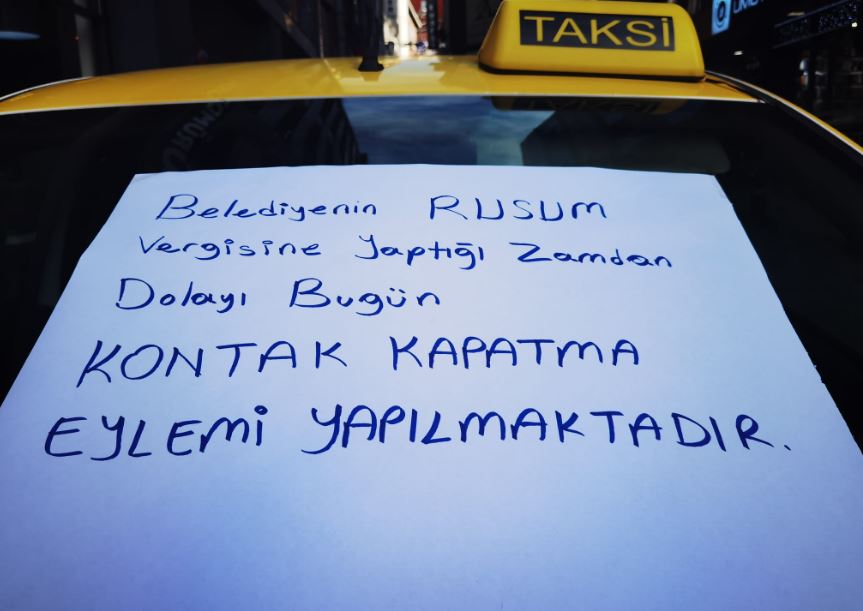 TAKSİ
Belediyenin RUSUM
Vergisine Yaptığı Zamdan
Dolayı Bugün
KONTAK KAPATMA
EYLEMİ YAPILMAKTADIR.